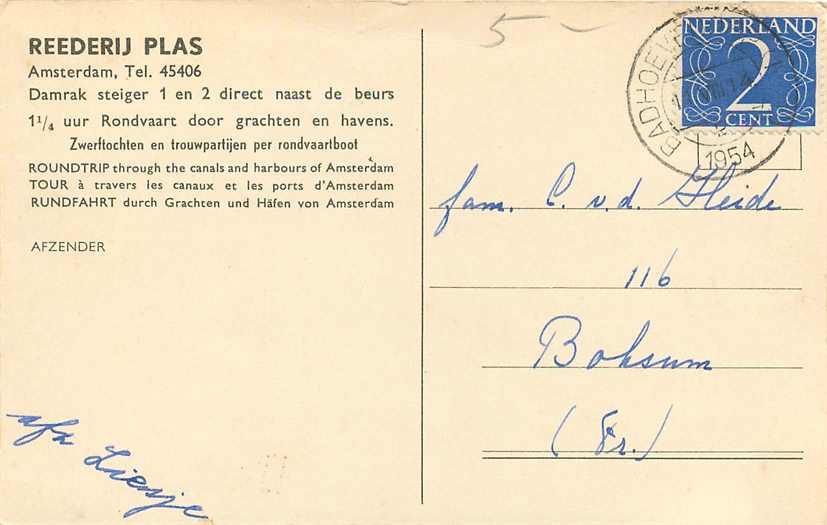 REEDERIJ PLAS
Amsterdam, Tel. 45406
Damrak steiger 1 en 2 direct naast de beurs
1 1/4 uur Rondvaart door grachten en havens.
Zwerftochten en trouwpartijen per rondvaartboot
ROUNDTRIP through the canals and harbours of Amsterdam
TOUR à travers les canaux et les ports d'Amsterdam
RUNDFAHRT durch Grachten und Häfen von Amsterdam
AFZENDER
afz Liesje
5 -
NEDERLAND
2
CENT
1954
fam. C. v.d. Heide
116
Boksum
(Fr.)